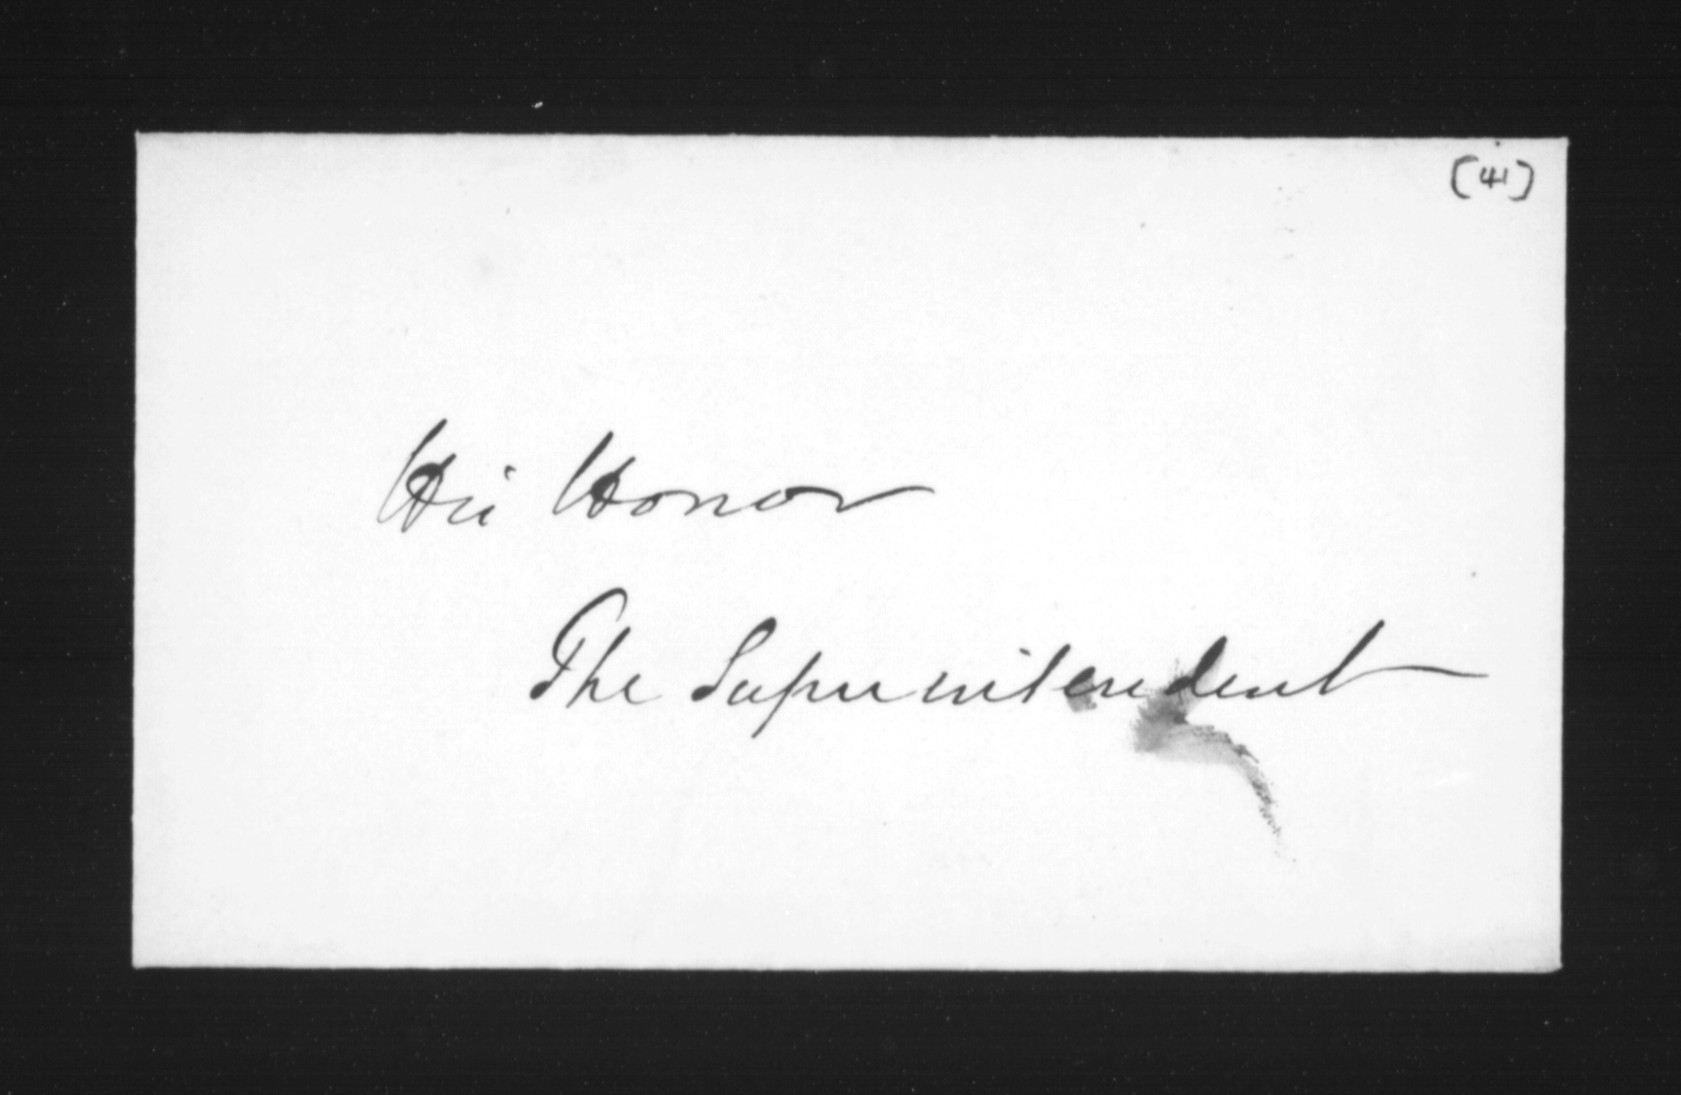 (41)
His Honor
The Superintendent